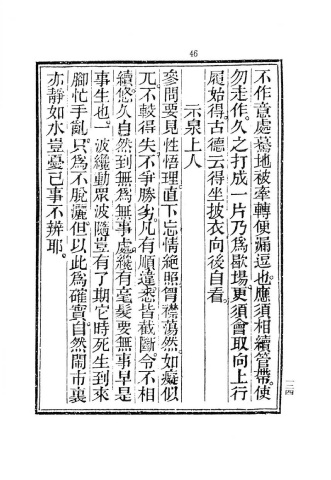 46
不作意處驀地被牽轉便漏逗也應須相續管帶使
勿走作久之打成一片乃為歇場更須會取向上行
履始得古德云得坐披衣向後自看。
示泉上人
參問要見性悟理直下忘情絕照胷襟蕩然如癡似
兀不較得失不爭勝劣凡有順違悉皆截斷令不相
續悠久自然到無為無事處纔有毫髮要無事早是
事生也一波纔動眾波隨豈有了期它時死生到來
腳忙手亂只為不脫灑但以此為確實自然鬧市裏
亦靜如水豈憂己事不辨耶。
一二四